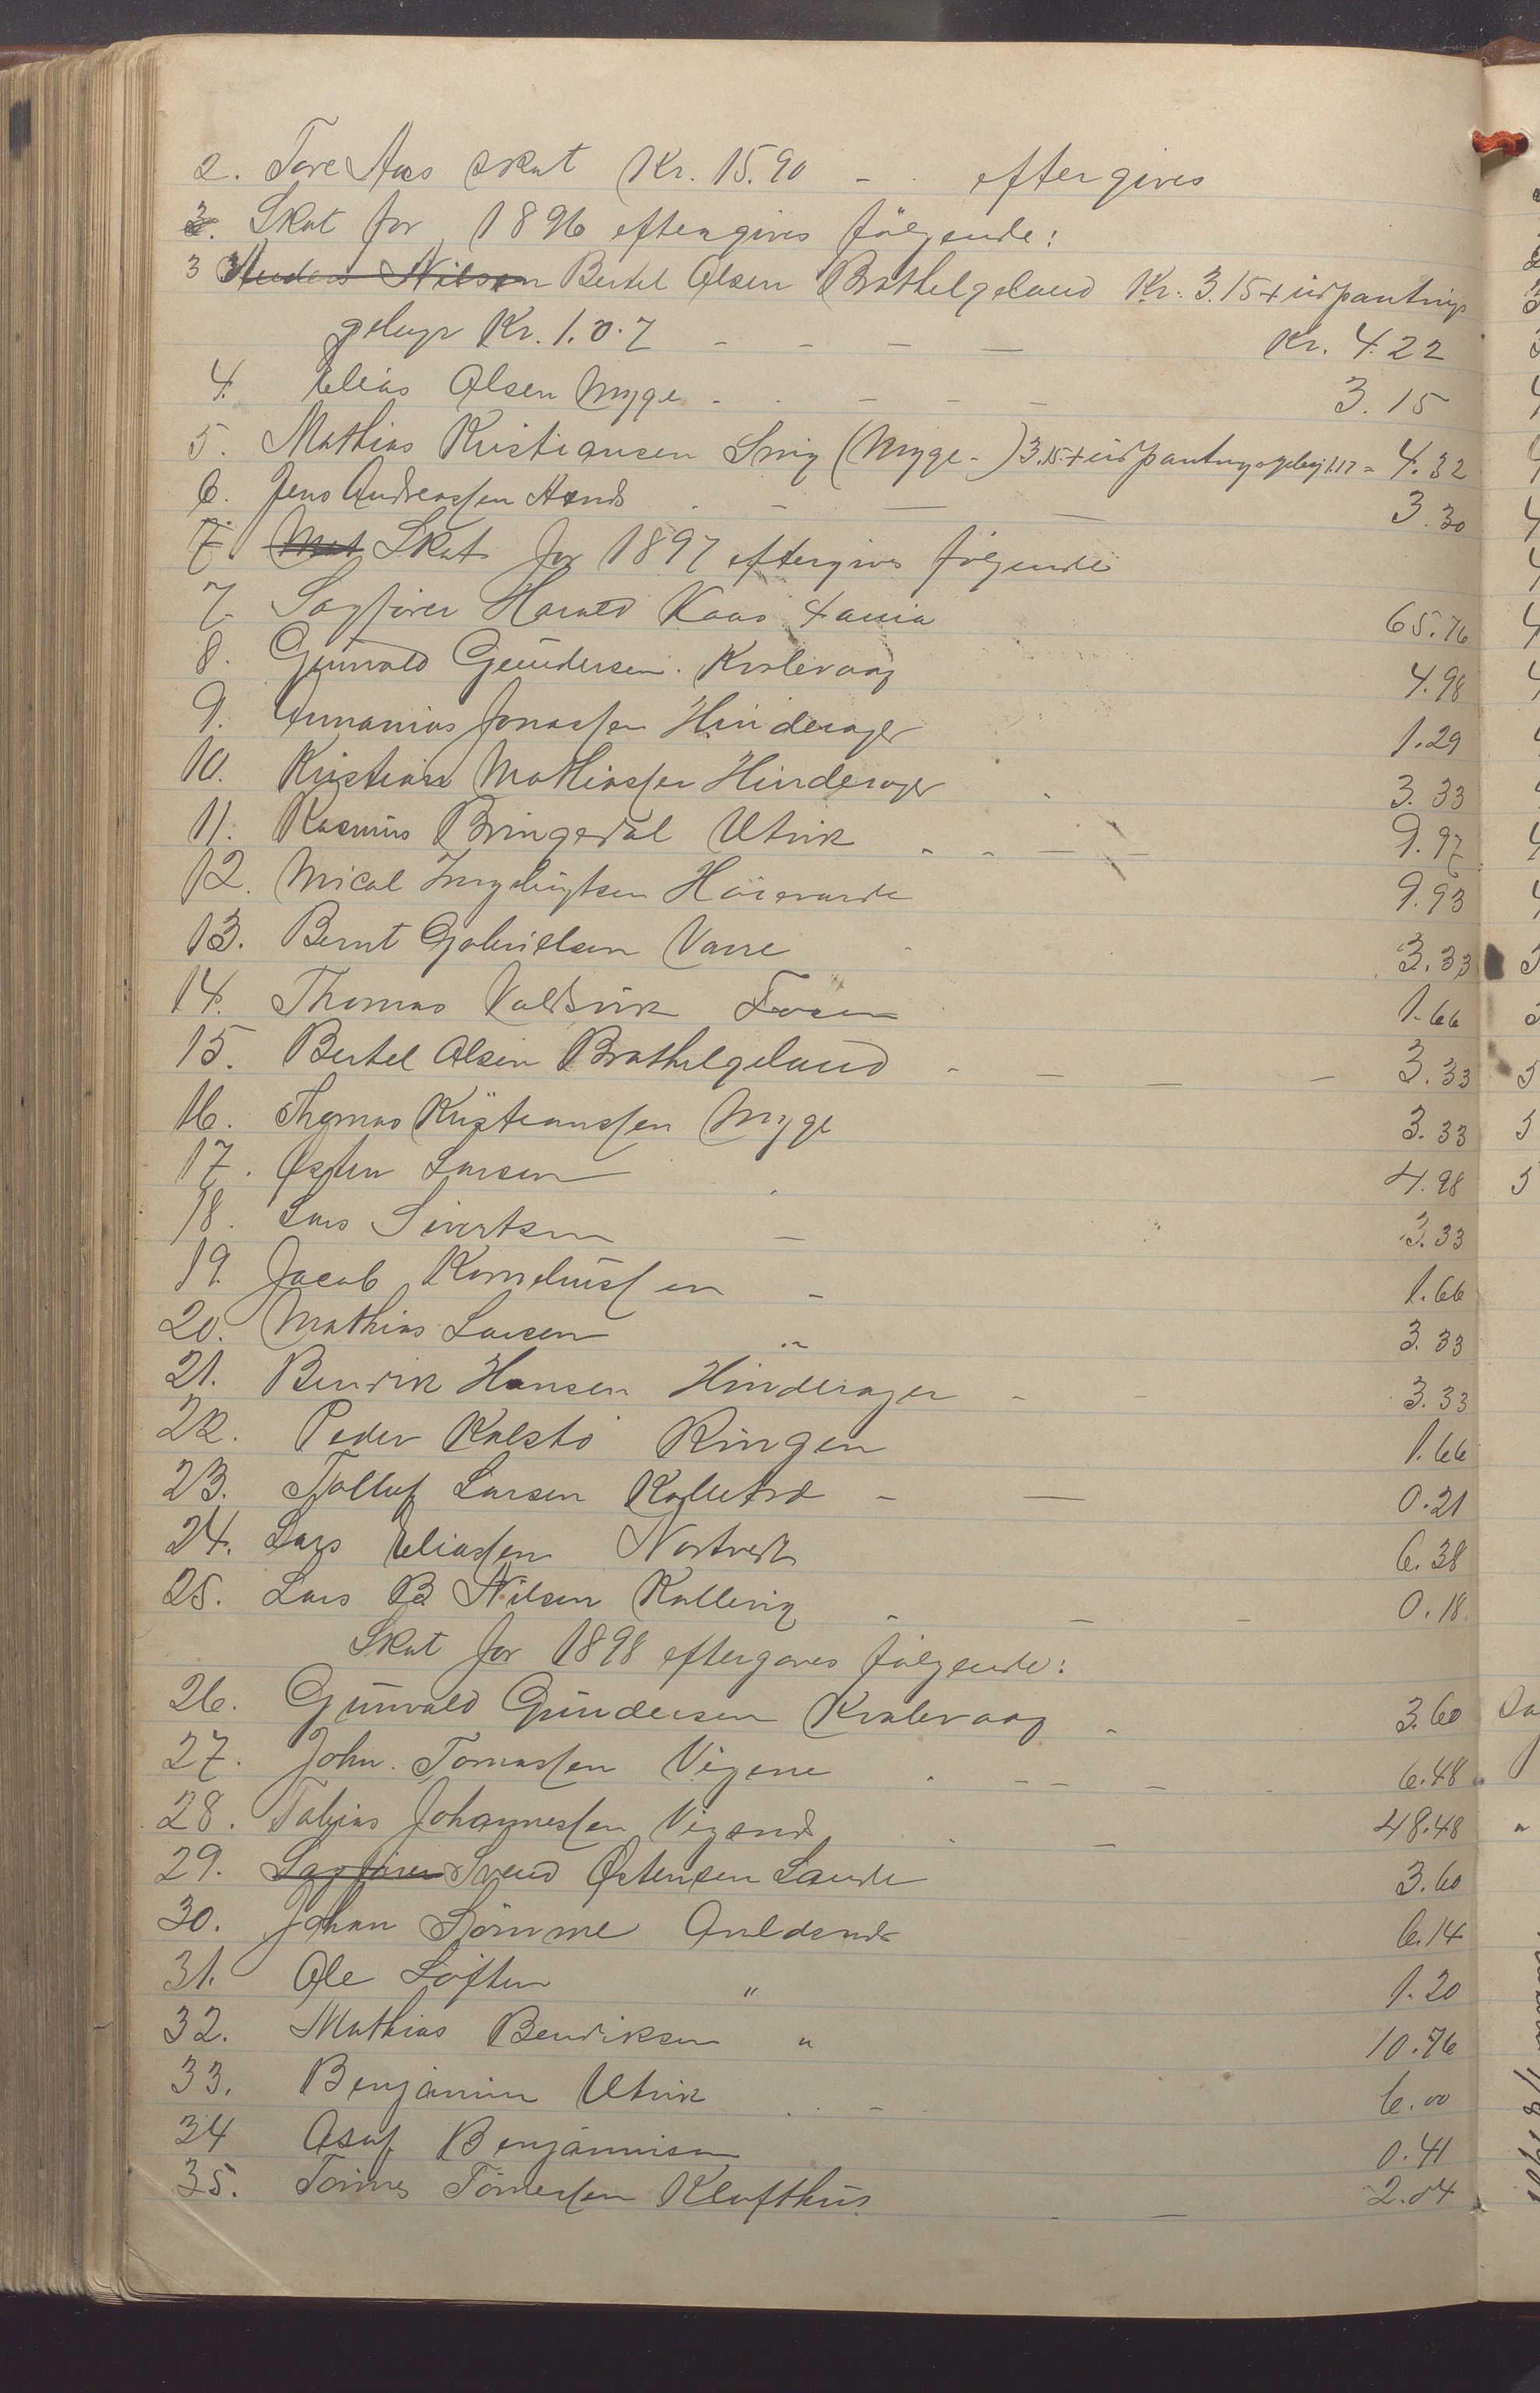 2. Tore Aas skat Kr. 15.90 - . eftergives
3. Skat for 1896 eftergives følgende:
3 Anders Nilsen Bertel Olsen Brathelgeland Kr. 3.15 + udpantnings
gebyr Kr. 1.07 - - - — Kr. 4.22
4. Elias Olsen Myge - . - - - 3.15
5. Mathias Kristiansen Snig (Myge -) 3.15 + udpantningsgebyr 1.17 = 4.32
6. Jens Andreassen Asnds . - — — 3.30
7. Mat Skat for 1897 eftergives følgende
7 Sagfører Harald Kaas Xania 65.76
8. Gunvald Gundersen. Kvalevaag 4.98
9. Annanias Jonassen Hinderager 1.29
10. Kristian Mathiassen Hinderager 3.33
11. Rasmus Bringedal Utvik 9.97
12. Mical Høievarde 9.93
13. Bernt Gabrielsen Vaare 3.33
14. Thomas Valdvik Fosen 1.66
15. Bertel Olsen Brathelgeland - — — — 3.33
16. Thomas Kristianssen Myge 3.33
17. Østen Larsen - 4.98
18. Lars Sivertsen — 3.33
19. Jacob Korneliussen - 1.66
20. Mathias Larsen " 3.33
21. Bendik Hansen Hinderager - - 3.33
22. Peder Kalstø Ringen 1.66
23. Tølluf Larsen - — 0.21
24. Lars Eliassen Nortveit 6.38
25. Lars B. Nilsen Kallevig - — - 0.18
Skat for 1898 eftergaves følgende:
26. Gunvald Gundersen Kvalevaag - 3.60
27. John. Tomassen Vigene . - - - 6.48
28. Tobias Johannessen Vigsnes . — 48.48
29. Sagfører Svend Østensen Sande 3.60
30. Johan Sömme 6.14
31. Ole Loften " 1.20
32. Mathias Bendiksen " 10.76
33. Benjamin Utvik . - 6.00
34 Asaf Benjaminsen 0.41
35. Tønnes Tønnessen Klufthus - — 2.04